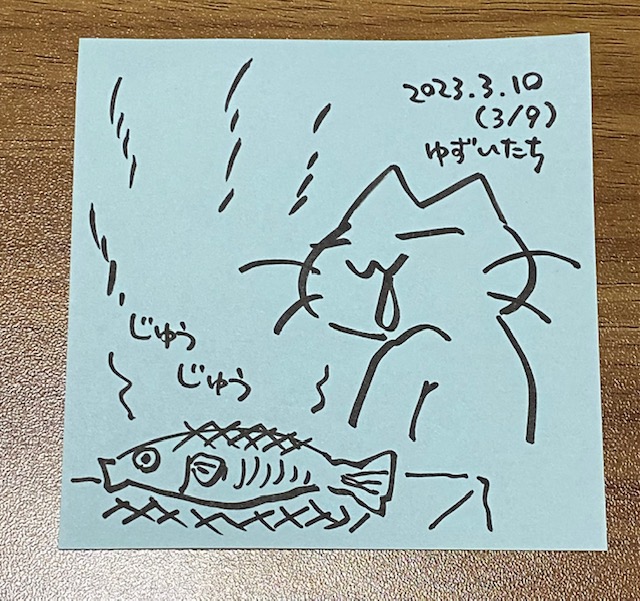 2023.3.10
(3/9)
ゆずいたち
じゅう
じゅう